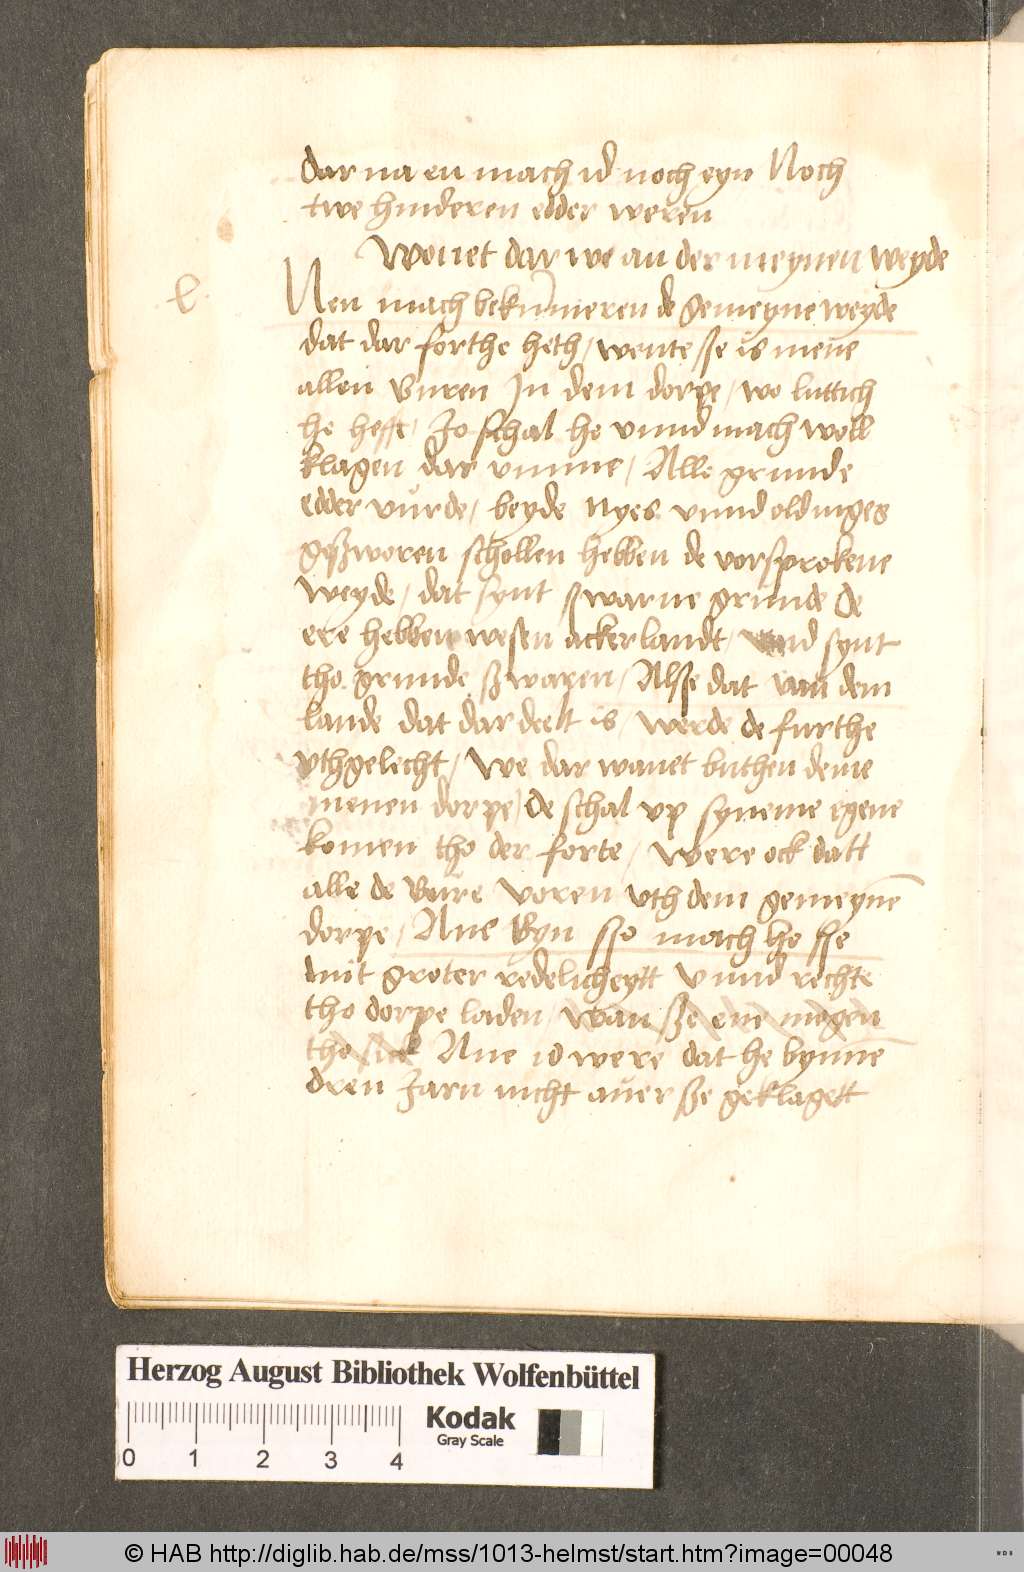 dar na en mach id noch eyn Noch
twe hinderen edder weren
Wonet dar we an der meynen weyde
l.
Nen mach bekūmeren de gemeyne weyde
dat dar forthe heth / wente sse is mene
allen buren In dem dorpe / wo luttich
he hefft / Jo schal he vnnd mach woll
klagen dar vmme / Alle grunde
edder vurde / beyde nyes vnnd oldinges
geßworen schollen hebben de vorsprokene
weyde / dat synt sware grunde de
ere hebben wesen ackerlandt / vnd synt
tho grunde ßwaren / Alsse dat van dem
lande dat dar deelt is / werde de furthe
vthgelecht / We dar wanet buthen deme
menen dorpe / de schal vp syneme egene
komen tho der forte / were ock datt
alle de Bure voren vth dem gemeynē
dorpe / Ane Eyn sso mach he sse
mit groter redelicheytt vnnd rechte
tho dorpe laden wan ße ene mogen
tho sick Ane id were dat he bynnē
dren Jarn nicht auer ße geklagett
Herzog August Bibliothek Wolfenbüttel
Kodak
Gray Scale
0 1 2 3 4
© HAB http://diglib.hab.de/mss/1013-helmst/start.htm?image=00048